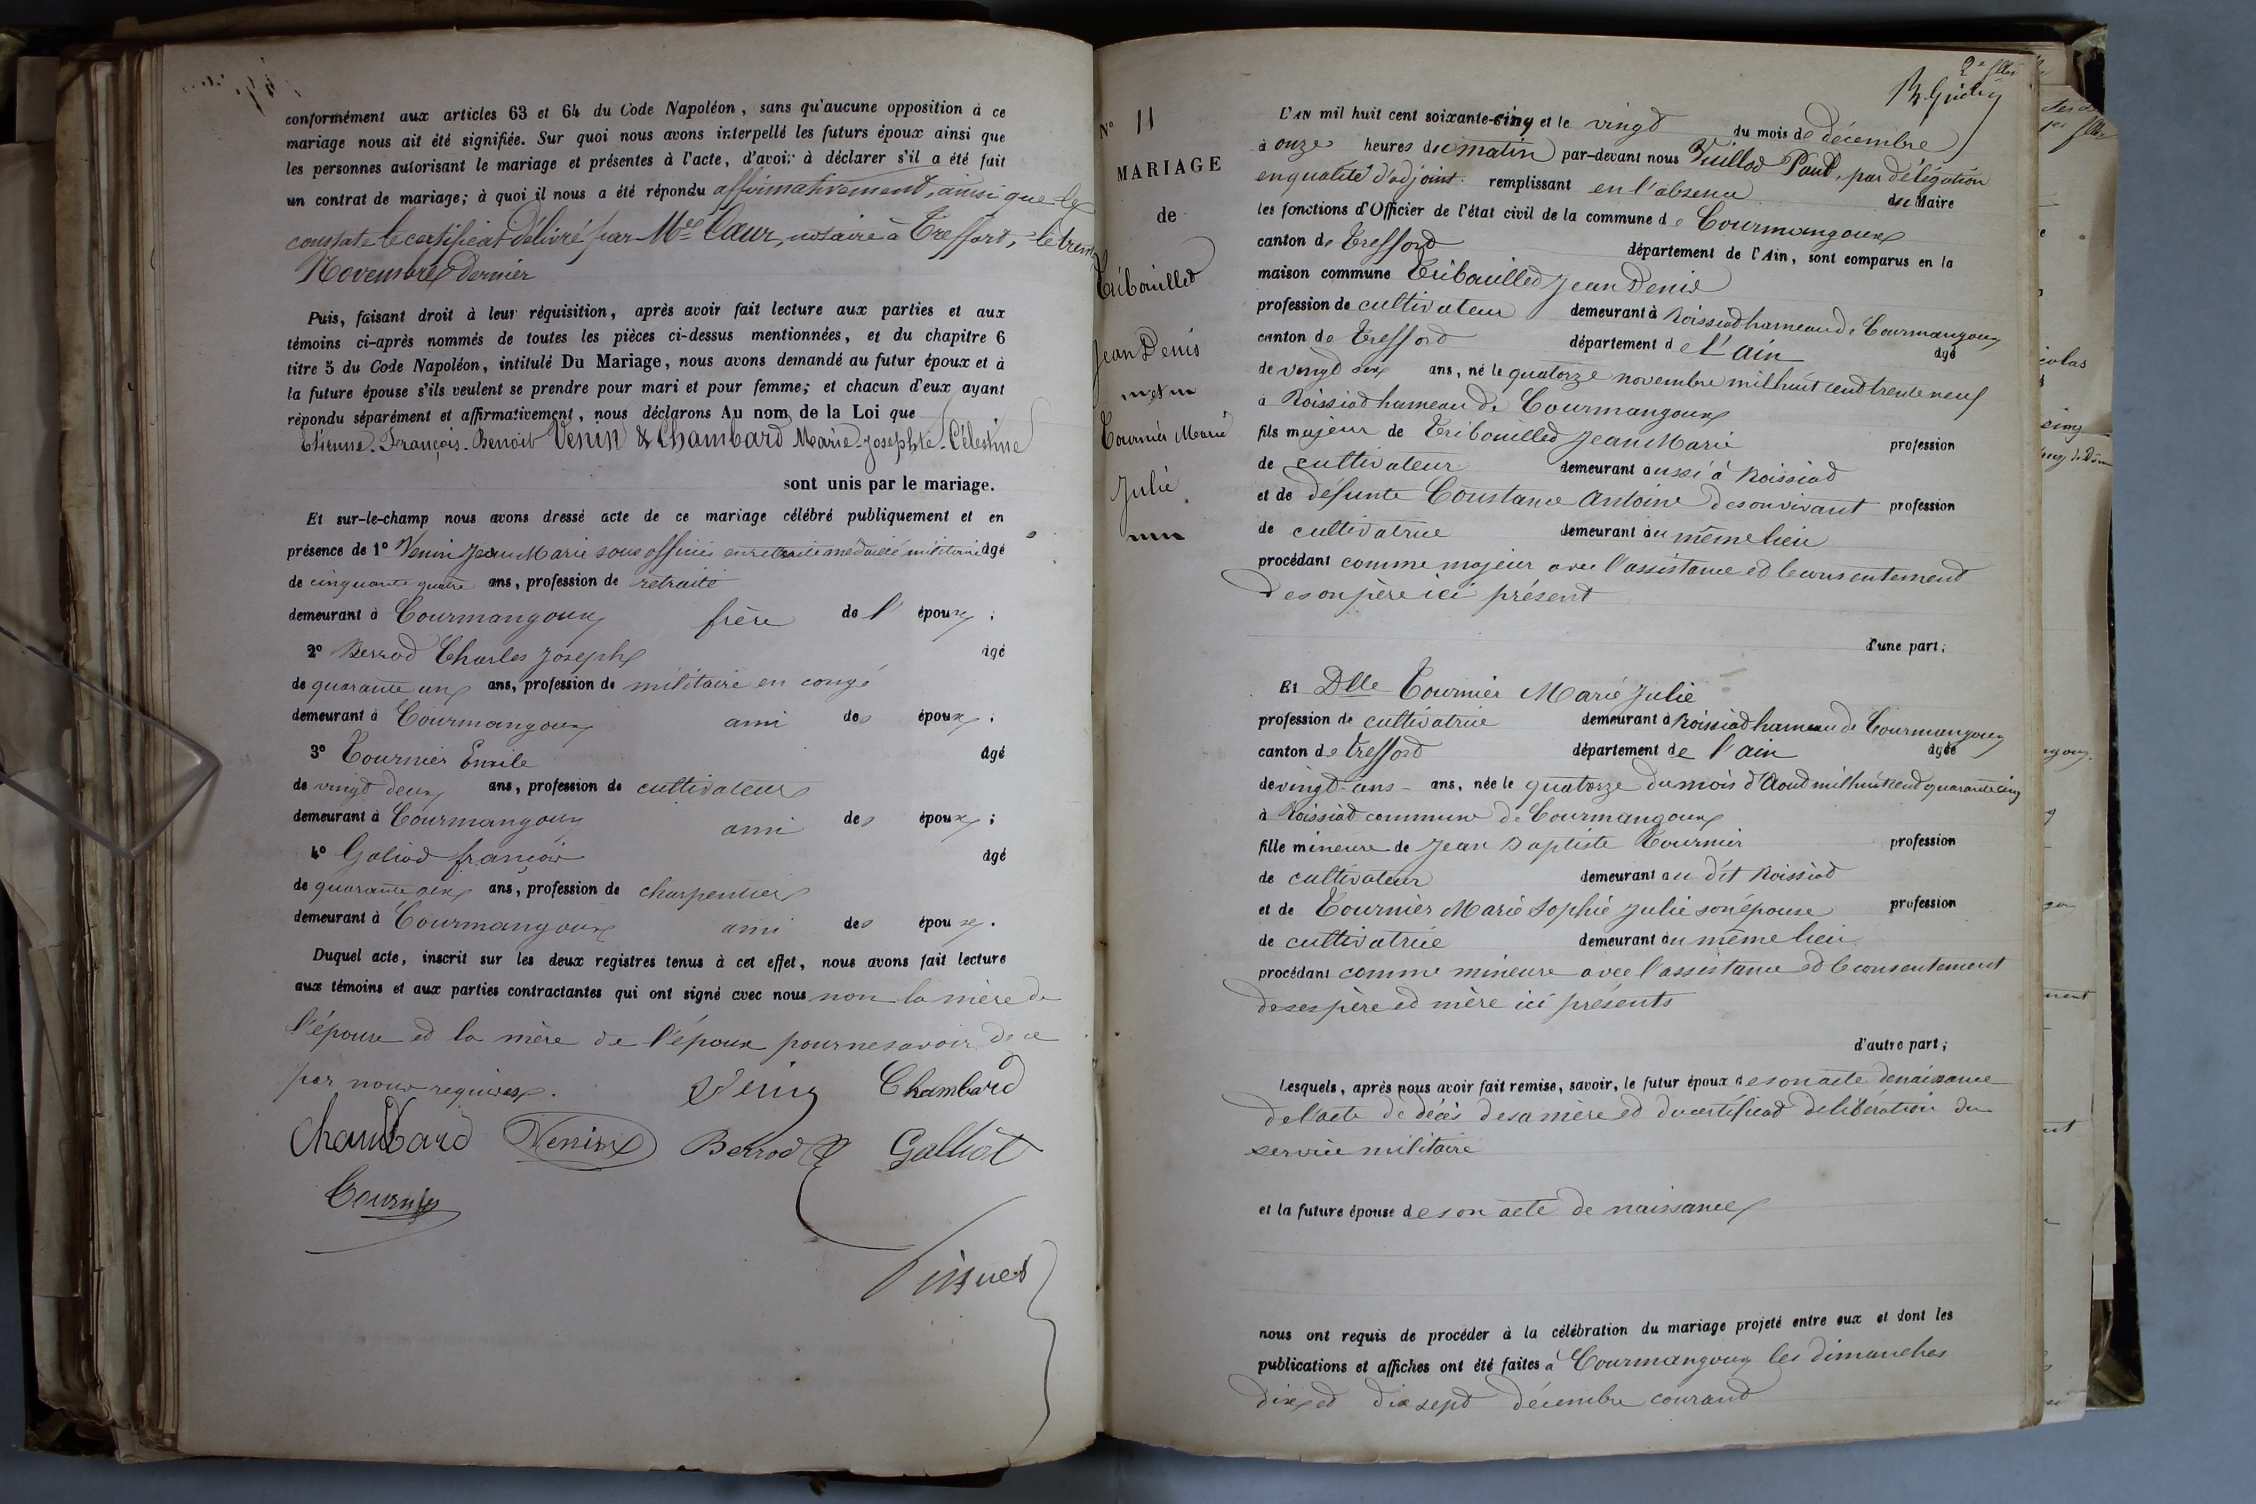 conformément aux articles 63 et 64 du Code Napoléon, sans qu'aucune opposition à ce
mariage nous ait été signifiée. Sur quoi nous avons interpellé les futurs époux ainsi que
les personnes autorisant le mariage et présentes à l'acte, d'avoir à déclarer s'il a été fait
un contrat de mariage; à quoi il nous a été répondu affirmativement, ainsi que le
constate le certificat délivré par Me Caur, notaire à Treffort, le trente
Novembre dernier
Puis, faisant droit à leur réquisition, après avoir fait lecture aux parties et aux
témoins ci-après nommés de toutes les pièces ci-dessus mentionnées, et du chapitre 6
titre 5 du Code Napoléon, intitulé Du Mariage, nous avons demandé au futur époux et à
la future épouse s'ils veulent se prendre pour mari et pour femme; et chacun d'eux ayant
répondu séparément et affirmativement, nous déclarons Au nom de la Loi que
Etienne-François-Benoit Venin & Chambard Marie-Josephte-Célestine
sont unis par le mariage.
Et sur-le-champ nous avons dressé acte de ce mariage célébré publiquement et en
présence de 1° Venin Jean Marie sous officier en retraite médaillé militaire âgé
de cinquante quatre ans, profession de retraité
demeurant à Courmangoux frère de l' époux ;
2° Berrod Charles Joseph âgé
de quarante un ans, profession de militaire en congé
demeurant à Courmangoux ami des époux ;
3° Tournier Emile âgé
de vingt deux ans, profession de cultivateur
demeurant à Courmangoux ami des époux ;
4° Galiod françois âgé
de quarante six ans, profession de charpentier
demeurant à Courmangoux ami des époux .
Duquel acte, inscrit sur les deux registres tenus à cet effet, nous avons fait lecture
aux témoins et aux parties contractantes qui ont signé avec nous non la mère de
l'épouse et la mère de l'époux pour ne savoir de ce
par nous requises.
Venin Chambard
Chambard Venin Berrod Galliot
Tournier
N° 11
MARIAGE
de
Tribouilled
Jean Denis
et
Tournier Marie
Julie
2e flle
L'AN mil huit cent soixante-cinq et le vingt du mois de décembre
à onze heures du matin par-devant nous Vuillod Paul, par délégation
en qualité d'adjoint remplissant en l'absence du Maire
les fonctions d'Officier de l'état civil de la commune de Courmangoux
canton de Trefford département de l'Ain, sont comparus en la
maison commune Tribouilled Jean Denis
profession de cultivateur demeurant à Roissiad hameau de Courmangoux
canton de Trefford département de L'ain âgé
de vingt six ans, né le quatorze novembre mil huit cent trente neuf
à Roissiad hameau de Courmangoux
fils majeur de Tribouilled Jean Marie profession
de cultivateur demeurant aussi à Roissiad
et de défunte Constance Antoine de son vivant profession
de cultivatrice demeurant au même lieu
procédant comme majeur avec l'assistance et le consentement
de son père ici présent
d'une part;
Et Dlle Tournier Marie Julie
profession de cultivatrice demeurant à Roissiad hameau de Courmangoux
canton de trefford département de l'ain âgée
de vingt-ans - ans, née le quatorze du mois d'Aout mil huit cent quarante cinq
à Roissiad commune de Courmangoux
fille mineure de Jean Baptiste Tournier profession
de cultivateur demeurant au dit Roissiad
et de Tournier Marie Sophie Julie son épouse profession
de cultivatrice demeurant au même lieu
procédant comme mineure avec l'assistance et le consentement
de ses père et mère ici présents
d'autre part;
Lesquels, après nous avoir fait remise, savoir, le futur époux de son acte de naissance
de l'acte de décès de sa mère et du certificat de libération du
service militaire
et la future épouse de son acte de naissance
nous ont requis de procéder à la célébration du mariage projeté entre eux et dont les
publications et affiches ont été faites à Courmangoux les dimanches
dix et dix sept décembre courant